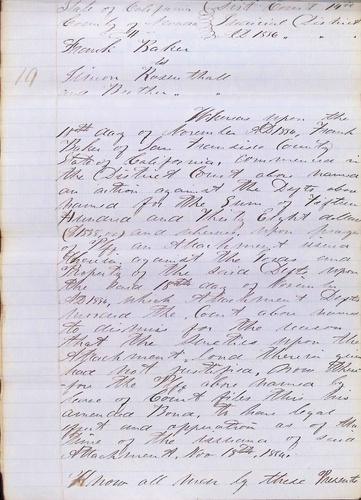 State of California } Dist Court 14th
County of Nevada } Judicial District
AD 1856
Frank Baker
vs
19
Simon Rosenthall
and Brother
Whereas upon the
18th day of November AD 1856, Frank
Baker of San Francisco County
State of California, commenced in
the District Court above named
an action against the Defts above
named for the Sum of Fifteen
Hundred and Thirty Eight dollars
and whereas, upon
of Plff an Attachment issued
therein against the Goods and
Property of the said Defts, upon
the said 18th day of November
AD 1856, which Attachment Defts
moved the Court above named
to dismiss for the reason
that the Sureties upon the
Attachment bond therein given
had not justified, Now there
-fore the Plff above named by
leave of Court files this his
amended Bond, to have legal
effect and operation as of the
time of the issuance of said
Attachment, Nov 18th, 1856.
Know all men by these Presents